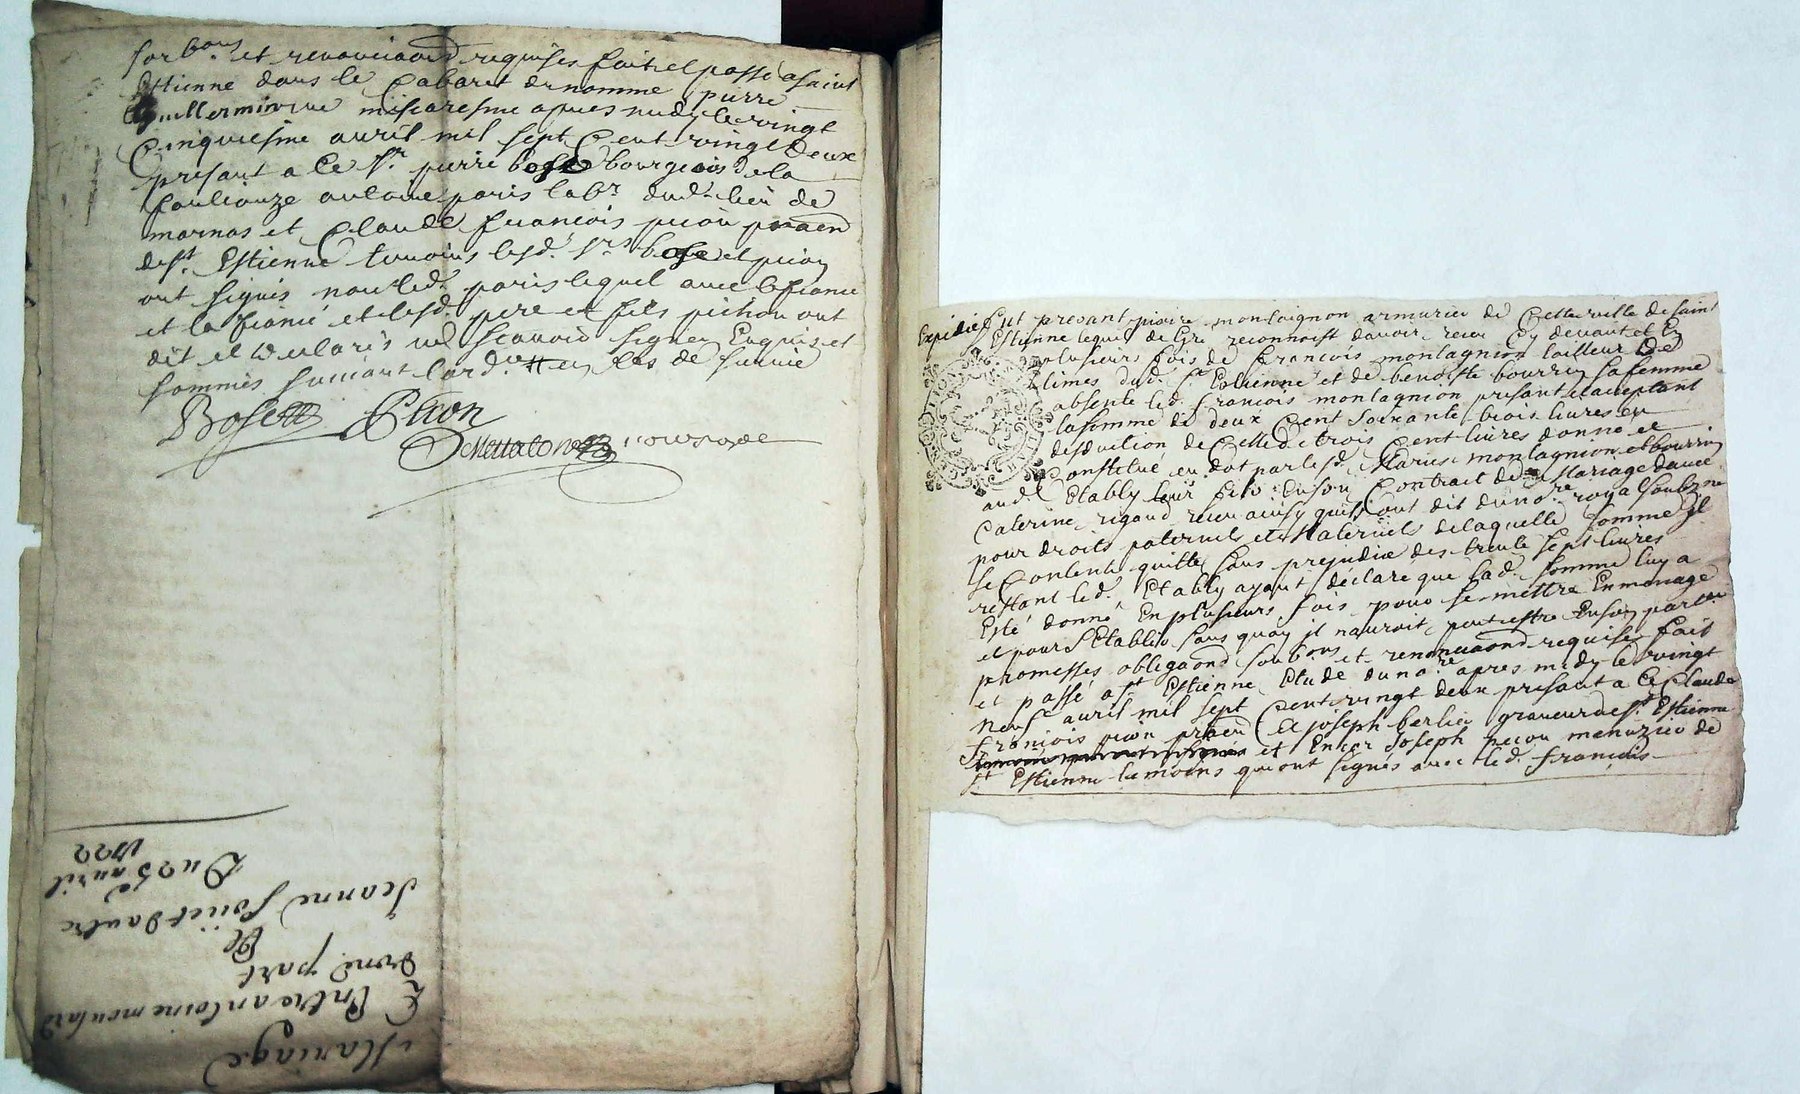 sorbons et renonciaond requises fait et passé a saint
Estienne dans le Cabaret du nomme pierre
guillermin rue apres midy le vingt
Cinquiesme avril mil sept Cent vingt deux
presant a Ce Sr. pierre bose bourgeois de la
fouliouze antoine paris labr. dud. lieu de
marnas et Claude francois picon praen
de st. Estienne temoins lesd. srs bose et picon
ont signés non led. paris lequel avec le fiance
et la fiancé et lesd. pere et fils pichon ont
dit et declarés ne scavoir signer Enquis et
sommés suivant lord.
Bosett Picon
Mariage
Entre antoine moulard
dune part
Et
Jeanne foüet dautre
Du 25 avril
1722
Expédié
Fut presant piaire montaignon armurier de Cette ville de saint
Estienne lequel de gre reconnoist davoir receu Cy devant et En
plusieurs fois de francois montagnion tailleur de
limes dud. st. Estienne et de benoiste bourrin sa femme
absente led. francois montagnion presant et acceptant
la somme de deux Cent soixante trois livres en
desduction de Celle de trois Cent livres donne et
Constitué en dot par lesd. Maries montagnion et bourrin
aud. Etably leur fils En son Contrat de Mariage avec
Caterine rigaud receu ainsy quils ont dit du nore. royal soubzne
pour droits paternels et Maternels de laquelle somme Il
se Contente quitte sans prejudice des trente sept livres
restant led. Etably ayant déclaré que lad. somme luy a
Esté donné En plusieurs fois pour se mettre En menage
et pour sEtablir sans quoy il nauroit peut estre Ensoy parler
promesses obligaond soubons et renonciaond requises fait
et passé a st. Estienne Etude du nore. apres midy le vingt
neuf avril mil sept Cent vingt deux presant a Ce Claude
francois picon praen Et joseph berlier graveur de st. Estienne
et Encor Joseph picon menuzier de
st. Estienne temoins qui ont signés avec led. francois